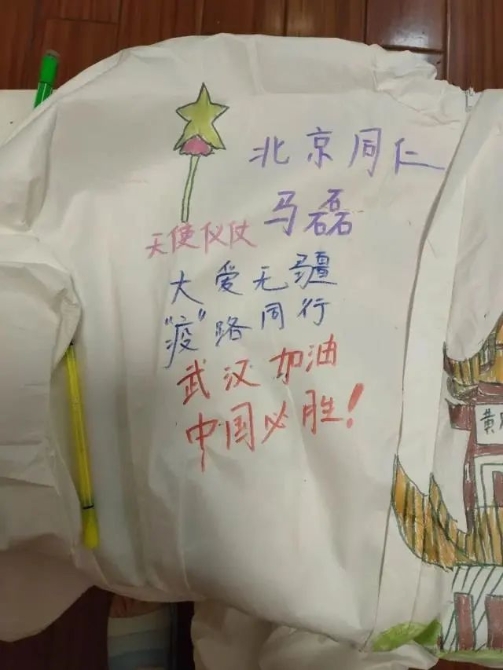 北京同仁
马磊
天使仪仗
大爱无疆
“疫”路同行
武汉加油
中国必胜！
黄